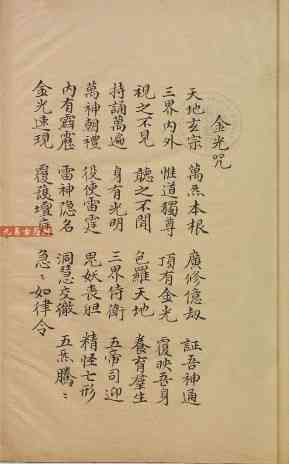 金光咒
天地玄宗 萬炁本根 廣修億劫 証吾神通
三界内外 惟道獨尊 頂有金光 覆映吾身
視之不見 聽之不聞 包羅天地 養育羣生
持誦萬遍 身有光明 三界侍衛 五帝司迎
萬神朝禮 役使雷霆 鬼妖喪胆 精怪亡形
内有霹靂 雷神隐名 洞慧交徹 五炁騰〻
金光速現 覆護壇 急〻如律令